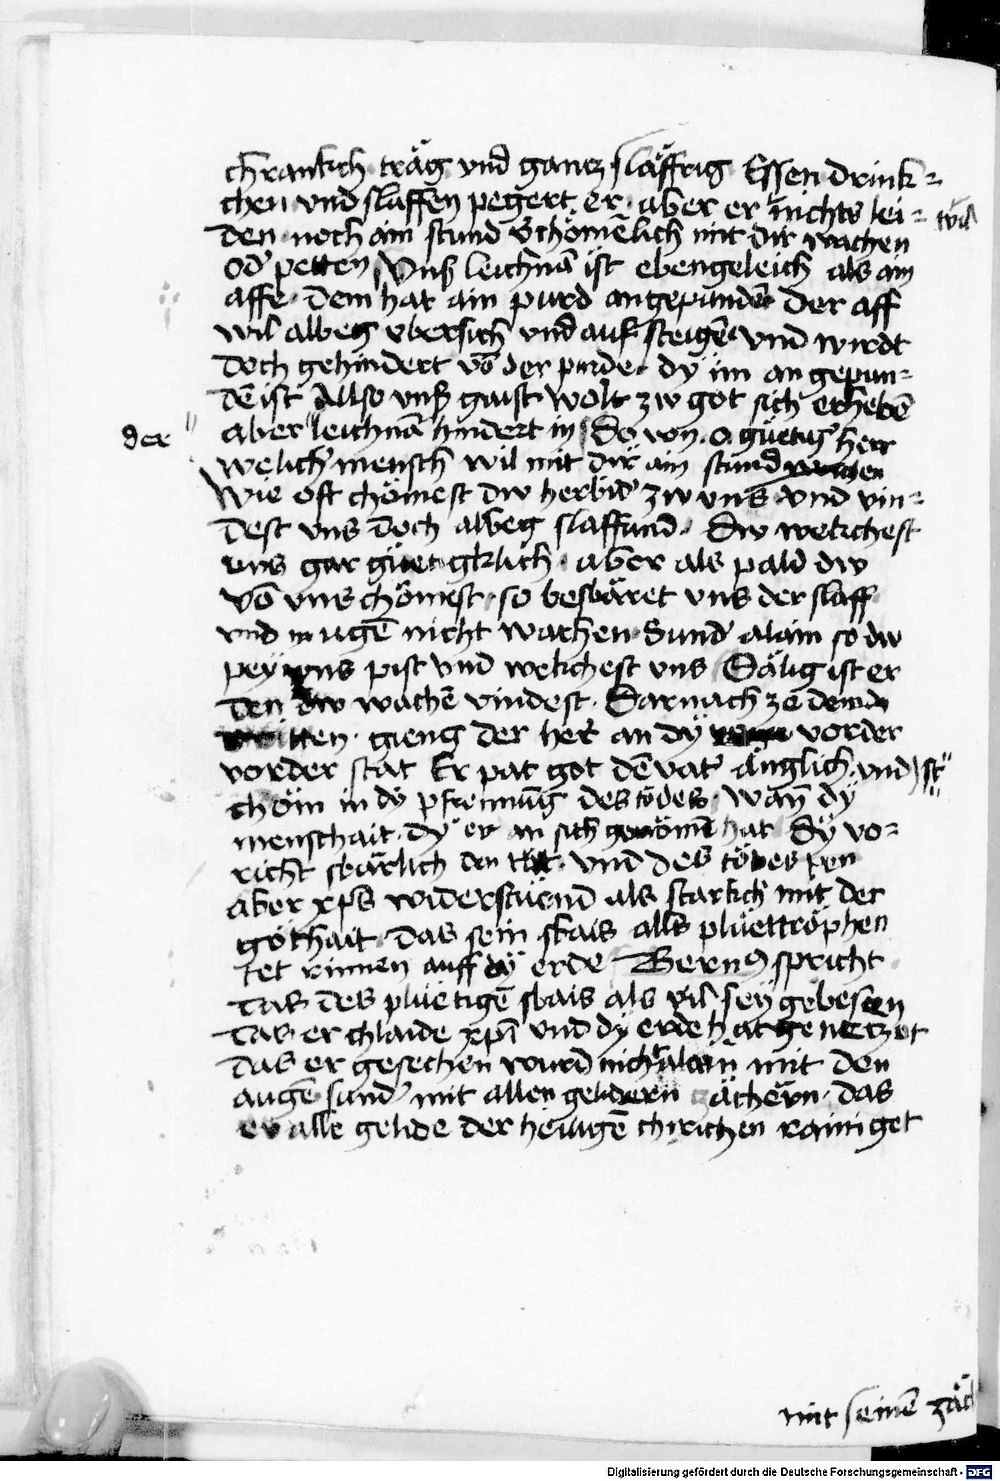 chrankch träg vnd gancz släffrig Essen drink=
chen vnd slaffen pegert er · aber er nichts lei=
wil
den noch ain stund Schömēlich mit dir wachen
od' petten Vnß leichnā ist ebengeleich als ain
affe · dem hat ain purd angepunden Der aff
wil albeg vbersich vnd auf steigē · vnd wirdt
doch gehindert vō der purde · dy im an gepun=
dē ist Allso vnß gaist wolt zw got sich erhebē
der
aber leichnā hindert in Do von · O güetig' herr
welich' mensch wil mit dir ain stund wachen
wie oft chömest dw herwid' zw vns · vnd vin=
dest vns doch albeg slaffund · Dw wekchest
vns gar güetigklich · aber als pald dw
vō vns chömest · so beswäret vns der slaff
vnd mugē nicht wachen · Sund' alain so dw
pey vns pist vnd wekchest vns Sälig ist er
den dw wachē vindest · Darnach ze dem
dritten · gieng der her' an dy vorder
vorder stat Er pat got dē vat' änglich · vnd
chöm in dy pfrennūg des tödes · wan dy
menschait · dy er an sich genömē hat Dy vo=
richt swärlich den tod · vnd des tödes pen
aber xps widerstüend als starkch mit der
gothait · das sein swais alls plüettröphen
tet rinnen auff dy erde Bern9 spricht
das des plüetigē swais als vil sey gebesen
das er chlaide xpi vnd dy erde hat genetzet
das er gesechen wurd nicht alain mit den
augē sund' mit allen gelidern zächern · das
er alle gelide der heiligē chirichen rainiget
mit seinē zäch
Digitalisierung gefördert durch die Deutsche Forschungsgemeinschaft - DFG